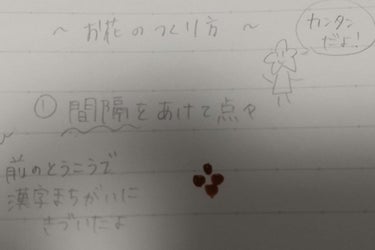 ～ お花のつくり方 ～
カンタン
だよ!
① 間隔をあけて点々
前のとうこうで
漢字まちがいに
きづいたよ